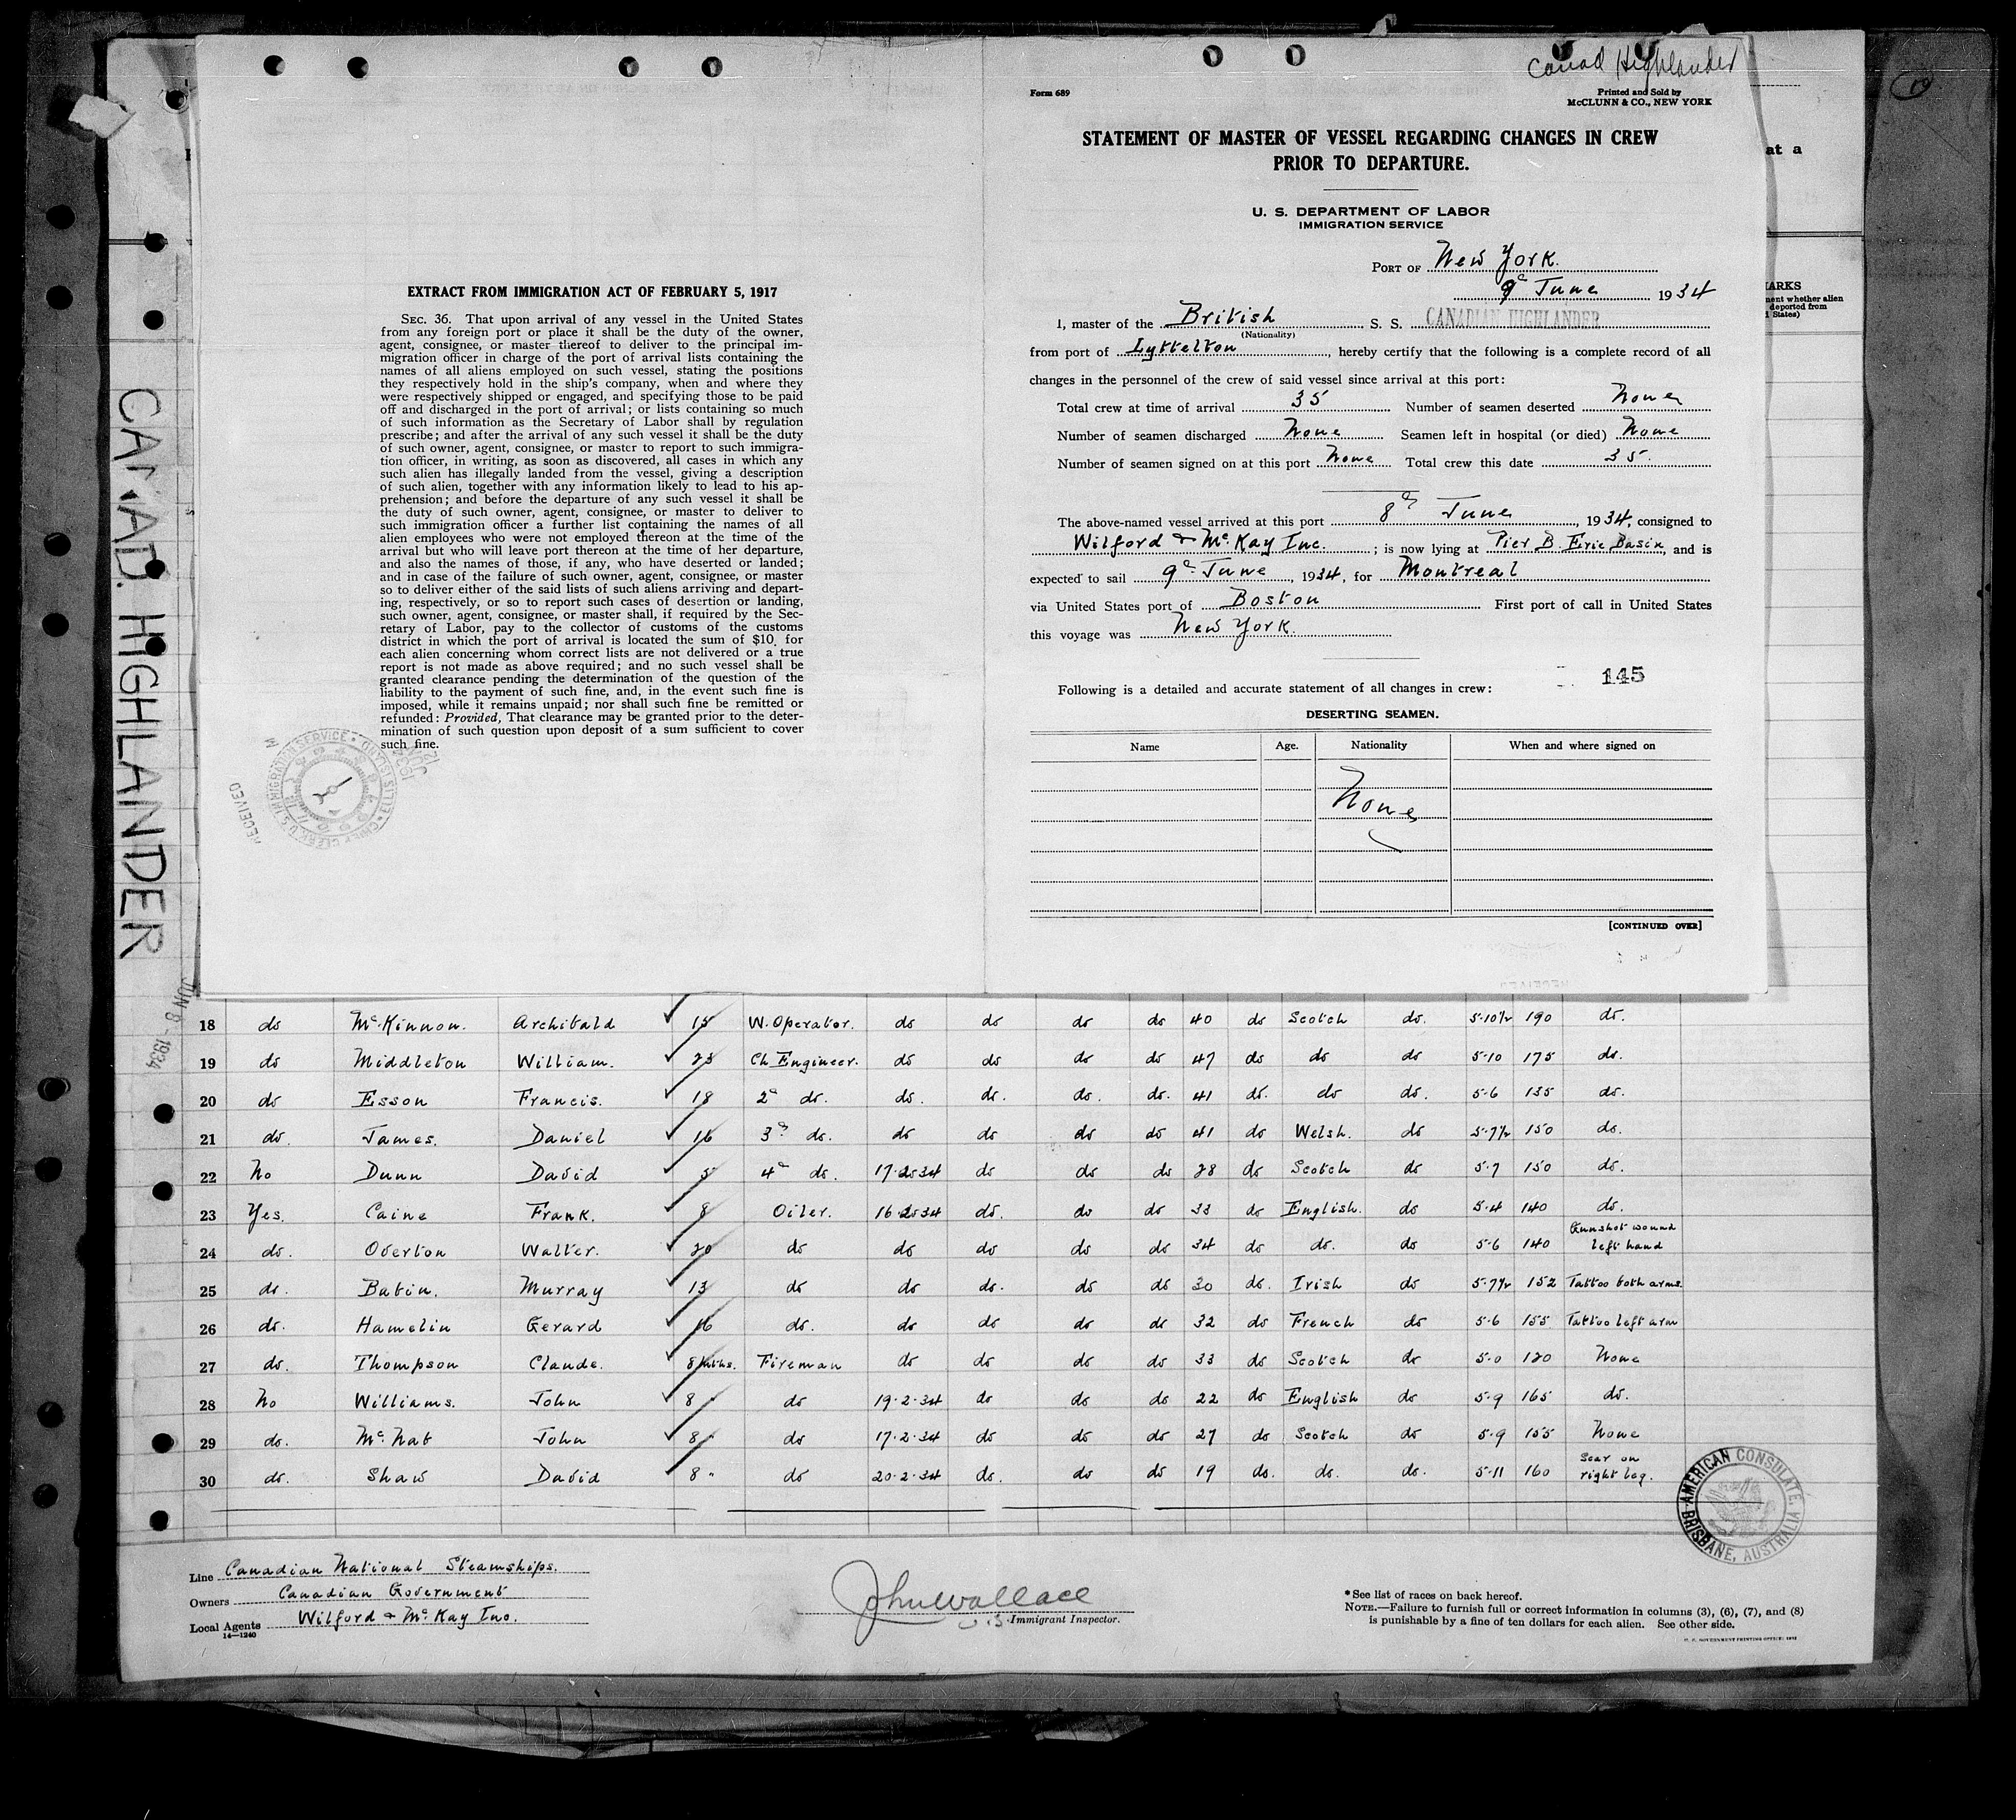 CANAD. HIGHLANDER
JUN 8 - 1934
EXTRACT FROM IMMIGRATION ACT OF FEBRUARY 5, 1917
SEC. 36. That upon arrival of any vessel in the United States
from any foreign port or place it shall be the duty of the owner,
agent, consignee, or master thereof to deliver to the principal im-
migration officer in charge of the port of arrival lists containing the
names of all aliens employed on such vessel, stating the positions
they respectively hold in the ship's company, when and where they
were respectively shipped or engaged, and specifying those to be paid
off and discharged in the port of arrival; or lists containing so much
of such information as the Secretary of Labor shall by regulation
prescribe; and after the arrival of any such vessel it shall be the duty
of such owner, agent, consignee, or master to report to such immigra-
tion officer, in writing, as soon as discovered, all cases in which any
such alien has illegally landed from the vessel, giving a description
of such alien, together with any information likely to lead to his ap-
prehension; and before the departure of any such vessel it shall be
the duty of such owner, agent, consignee, or master to deliver to
such immigration officer a further list containing the names of all
alien employees who were not employed thereon at the time of the
arrival but who will leave port thereon at the time of her departure,
and also the names of those, if any, who have deserted or landed;
and in case of the failure of such owner, agent, consignee, or master
so to deliver either of the said lists of such aliens arriving and depart-
ing, respectively, or so to report such cases of desertion or landing,
such owner, agent, consignee, or master shall, if required by the Sec-
retary of Labor, pay to the collector of customs of the customs
district in which the port of arrival is located the sum of $10 for
each alien concerning whom correct lists are not delivered or a true
report is not made as above required; and no such vessel shall be
granted clearance pending the determination of the question of the
liability to the payment of such fine, and, in the event such fine is
imposed, while it remains unpaid; nor shall such fine be remitted or
refunded: Provided, That clearance may be granted prior to the deter-
mination of such question upon deposit of a sum sufficient to cover
such fine.
RECEIVED
Canad Highlander
Form 689
Printed and Sold by
McCLUNN & CO., NEW YORK
STATEMENT OF MASTER OF VESSEL REGARDING CHANGES IN CREW
PRIOR TO DEPARTURE.
U. S. DEPARTMENT OF LABOR
IMMIGRATION SERVICE
PORT OF New York.
9th June 1934
I, master of the British S. S. CANADIAN HIGHLANDER
(Nationality)
from port of Lyttelton, hereby certify that the following is a complete record of all
changes in the personnel of the crew of said vessel since arrival at this port:
Total crew at time of arrival 35 Number of seamen deserted None
Number of seamen discharged None Seamen left in hospital (or died) None
Number of seamen signed on at this port None Total crew this date 35.
The above-named vessel arrived at this port 8th June, 1934, consigned to
Wilford & McKay Inc.; is now lying at Pier B. Erie Basin, and is
expected to sail 9th June, 1934, for Montreal
via United States port of Boston First port of call in United States
this voyage was New York.
145
Following is a detailed and accurate statement of all changes in crew:
DESERTING SEAMEN.
Name Age. Nationality When and where signed on
None
[CONTINUED OVER]
at a
18 do McKinnon. Archibald 15 W. Operator. do do do do 40 do Scotch do. 5-10½ 190 do.
19 do Middleton William. 25 Ch Engineer. do do do do 47 do do do 5-10 175 do.
20 do Esson Francis. 18 2d do. do. do. do. do. 41 do. do do. 5-6 135 do.
21 do. James. Daniel 16 3d do. do do do do 41 do Welsh. do 5-7½ 150 do.
22 No Dunn David 5 4th do. 17-2-34 do do do 28 do Scotch do 5-7 150 do.
23 Yes. Caine Frank. 8 Oiler. 16-2-34 do. do do 33 do English. do 5-4 140 do.
24 do. Overton Walter. 20 do do do do do 34 do do. do 5-6 140 Gunshot wound left hand
25 do. Babin. Murray 13 do do do. do do 30 do. Irish do 5-7½ 152 Tattoo both arms.
26 do. Hamelin Gerard 16 do. do do do do 32 do French do 5-6 155 Tattoo left arm
27 do. Thompson Claude. 8 mths. Fireman do do do do 33 do Scotch do 5-0 120 None
28 No Williams. John 8 " do 19-2-34 do do do 22 do English do 5-9 165 do.
29 do. McNab John 8 " do 17-2-34 do do do 27 do Scotch do 5-9 155 None
30 do. Shaw David 8 " do 20-2-34 do. do do 19 do. do. do. 5-11 160 Scar on right leg.
AMERICAN CONSULATE, BRISBANE, AUSTRALIA
Line Canadian National Steamships.
Owners Canadian Government
Local Agents Wilford & McKay Inc.
14—1240
John Wallace
Immigrant Inspector.
*See list of races on back hereof.
NOTE.—Failure to furnish full or correct information in columns (3), (6), (7), and (8)
is punishable by a fine of ten dollars for each alien. See other side.